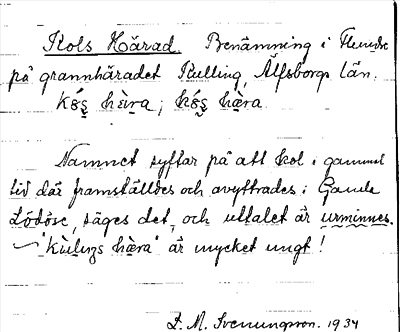 Kols Härad. Benämning i Flundre
på grannhäradet Kulling, Älfsborgs län.
kǫ́s̬ hæ̀ra; kǫ́s̬ hæ̀ra
Namnet syftar på att kol i gammal
tid där framställdes och avyttrades i Gamla
Lödöse, säges det, och uttalet är urminnes.
"kùlings hæ̀ra" är mycket ungt!
L. M. Svenungsson. 1934